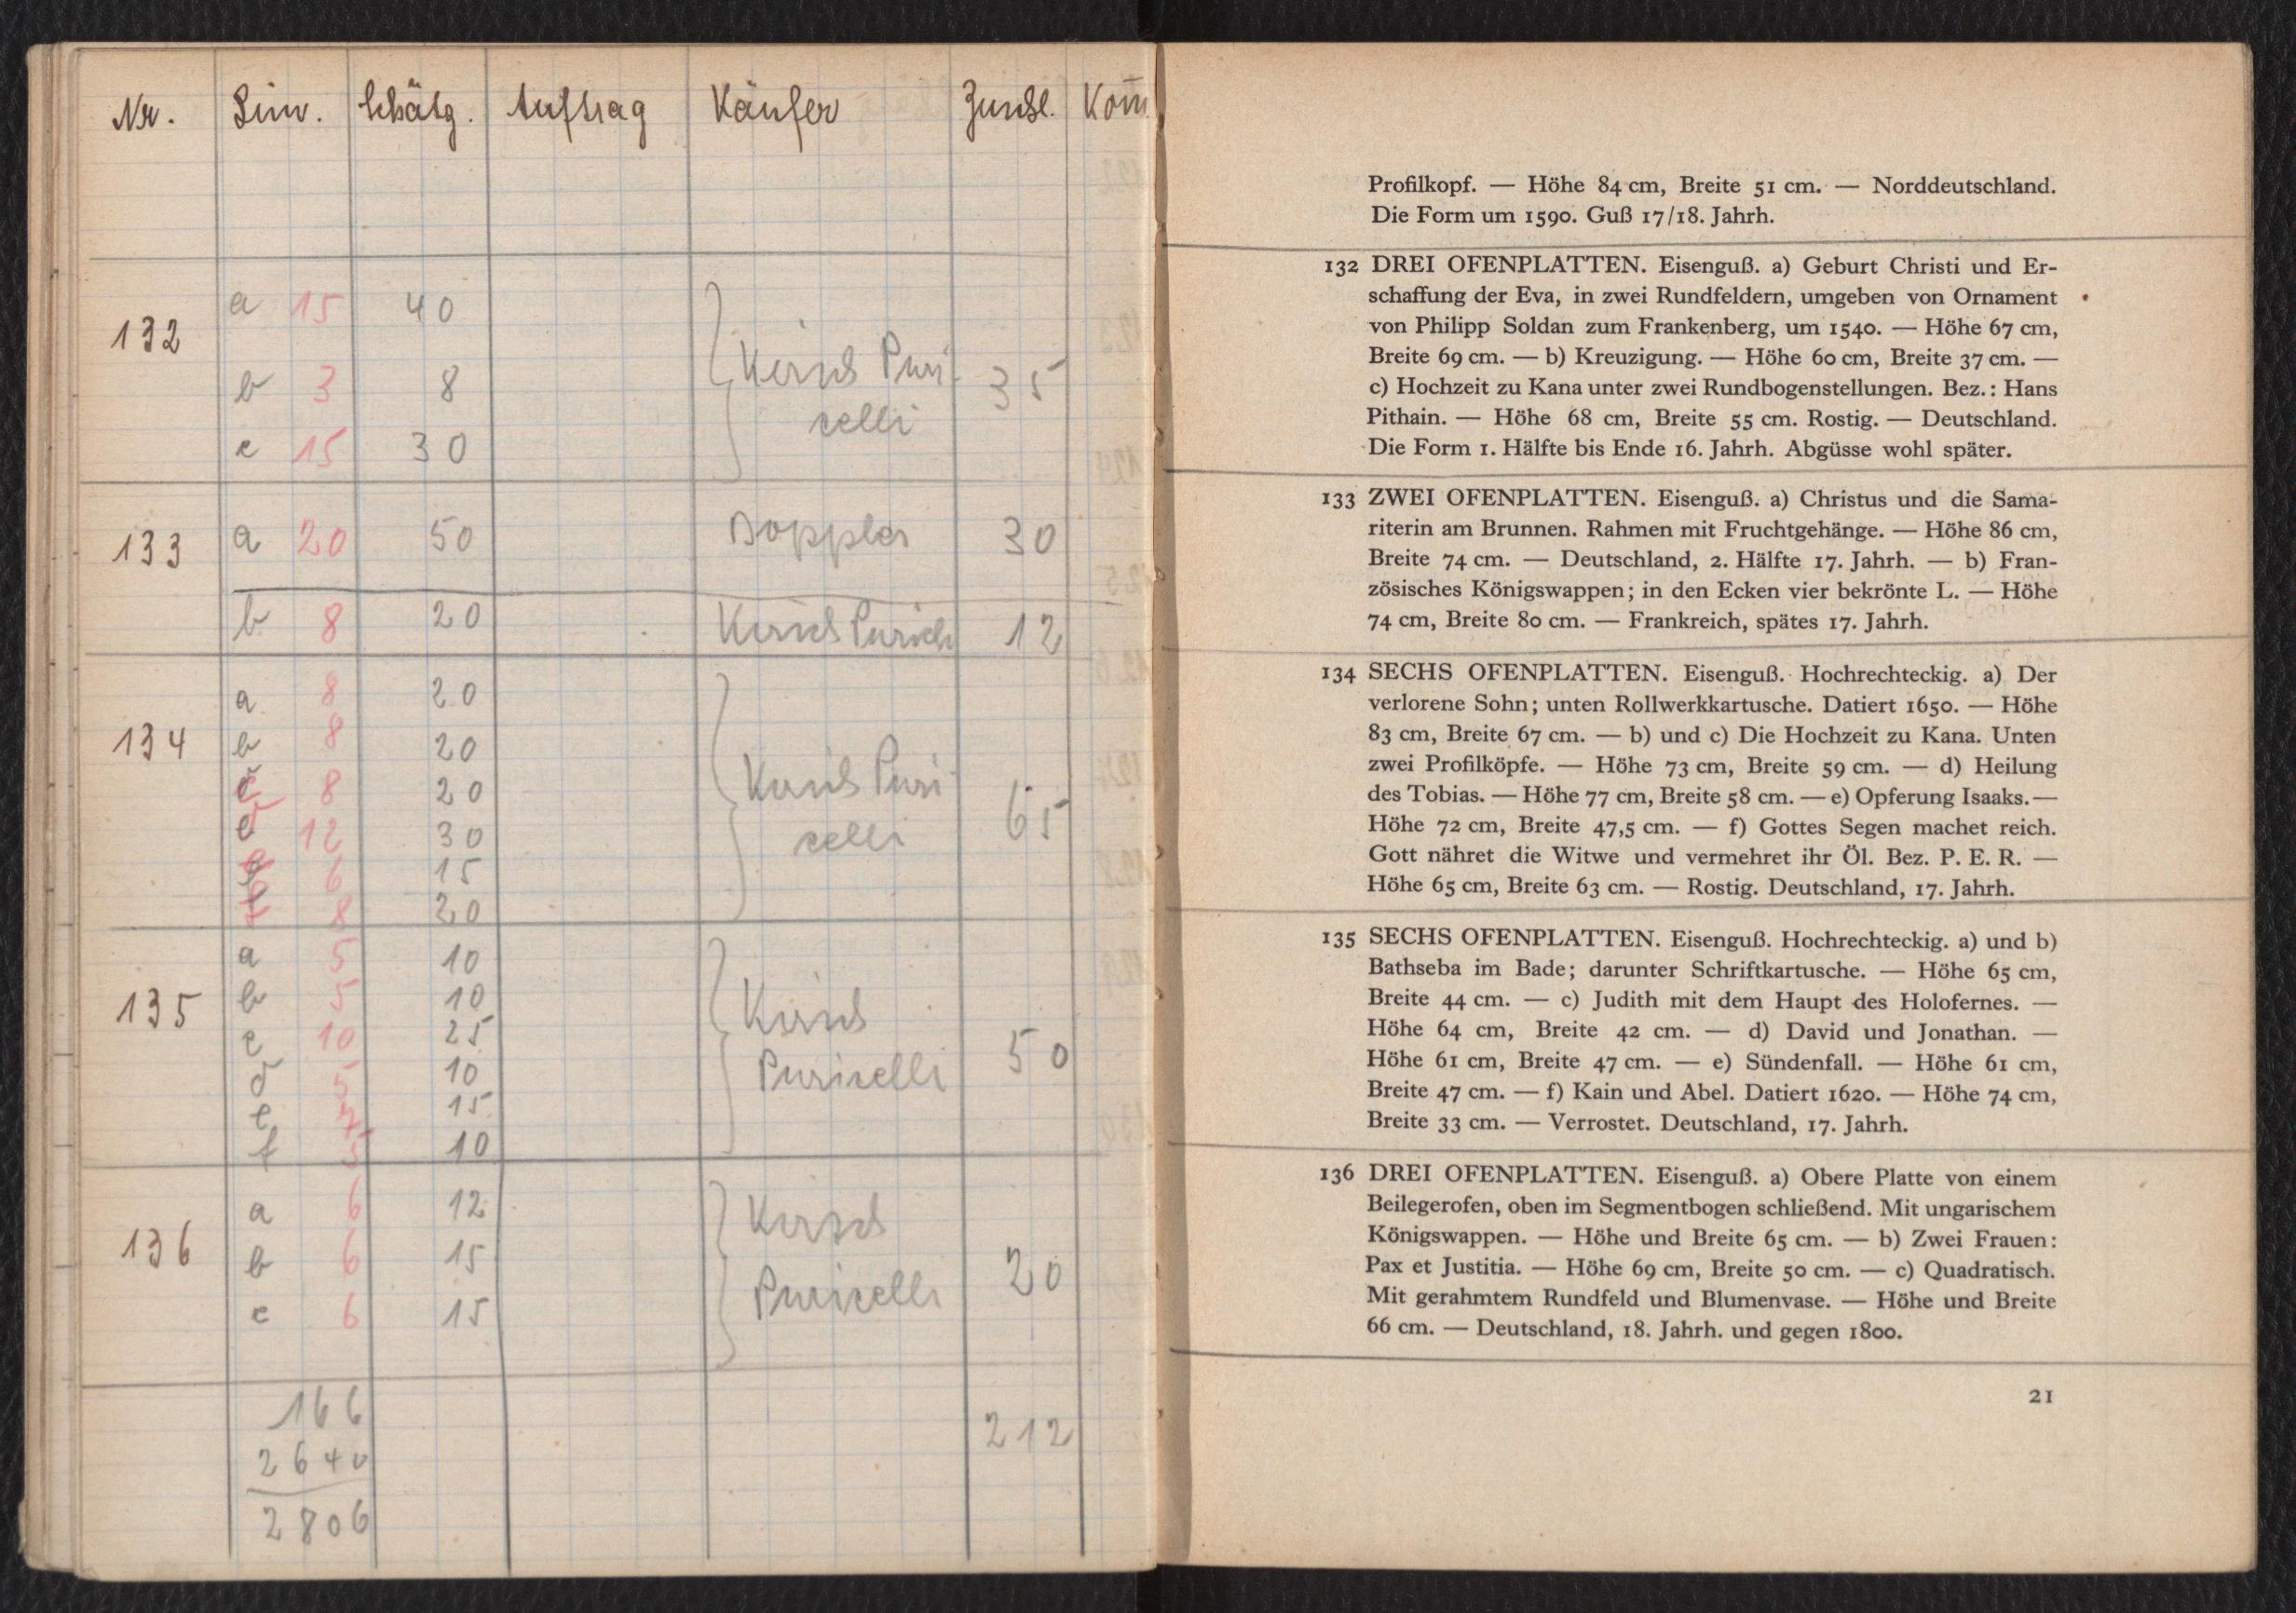 Nr. Lim. Schätz. Auftrag Käufer Zuschl. Kom̅
132 a 15 40
b 3 8 Kirsch Puri 35
celli
c 15 30
133 a 20 50 Doppler 30
b 8 20 Kirsch Puricelli 12
134 a 8 20
b 8 20
c 8 20 Kirsch Puri
d 12 30 celli 65
e 6 15
f 8 20
135 a 5 10
b 5 10 Kirsch
c 10 25 Puricelli 50
d 5 10
e 7 15
f 5 10
136 a 6 12 Kirsch
b 6 15 Puricelli 20
c 6 15
166
2640 212
2806
Profilkopf. — Höhe 84 cm, Breite 51 cm. — Norddeutschland.
Die Form um 1590. Guß 17/18. Jahrh.
132 DREI OFENPLATTEN. Eisenguß. a) Geburt Christi und Er-
schaffung der Eva, in zwei Rundfeldern, umgeben von Ornament
von Philipp Soldan zum Frankenberg, um 1540. — Höhe 67 cm,
Breite 69 cm. — b) Kreuzigung. — Höhe 60 cm, Breite 37 cm. —
c) Hochzeit zu Kana unter zwei Rundbogenstellungen. Bez.: Hans
Pithain. — Höhe 68 cm, Breite 55 cm. Rostig. — Deutschland.
Die Form 1. Hälfte bis Ende 16. Jahrh. Abgüsse wohl später.
133 ZWEI OFENPLATTEN. Eisenguß. a) Christus und die Sama-
riterin am Brunnen. Rahmen mit Fruchtgehänge. — Höhe 86 cm,
Breite 74 cm. — Deutschland, 2. Hälfte 17. Jahrh. — b) Fran-
zösisches Königswappen; in den Ecken vier bekrönte L. — Höhe
74 cm, Breite 80 cm. — Frankreich, spätes 17. Jahrh.
134 SECHS OFENPLATTEN. Eisenguß. Hochrechteckig. a) Der
verlorene Sohn; unten Rollwerkkartusche. Datiert 1650. — Höhe
83 cm, Breite 67 cm. — b) und c) Die Hochzeit zu Kana. Unten
zwei Profilköpfe. — Höhe 73 cm, Breite 59 cm. — d) Heilung
des Tobias. — Höhe 77 cm, Breite 58 cm. — e) Opferung Isaaks. —
Höhe 72 cm, Breite 47,5 cm. — f) Gottes Segen machet reich.
Gott nähret die Witwe und vermehret ihr Öl. Bez. P. E. R. —
Höhe 65 cm, Breite 63 cm. — Rostig. Deutschland, 17. Jahrh.
135 SECHS OFENPLATTEN. Eisenguß. Hochrechteckig. a) und b)
Bathseba im Bade; darunter Schriftkartusche. — Höhe 65 cm,
Breite 44 cm. — c) Judith mit dem Haupt des Holofernes. —
Höhe 64 cm, Breite 42 cm. — d) David und Jonathan. —
Höhe 61 cm, Breite 47 cm. — e) Sündenfall. — Höhe 61 cm,
Breite 47 cm. — f) Kain und Abel. Datiert 1620. — Höhe 74 cm,
Breite 33 cm. — Verrostet. Deutschland, 17. Jahrh.
136 DREI OFENPLATTEN. Eisenguß. a) Obere Platte von einem
Beilegerofen, oben im Segmentbogen schließend. Mit ungarischem
Königswappen. — Höhe und Breite 65 cm. — b) Zwei Frauen:
Pax et Justitia. — Höhe 69 cm, Breite 50 cm. — c) Quadratisch.
Mit gerahmtem Rundfeld und Blumenvase. — Höhe und Breite
66 cm. — Deutschland, 18. Jahrh. und gegen 1800.
21